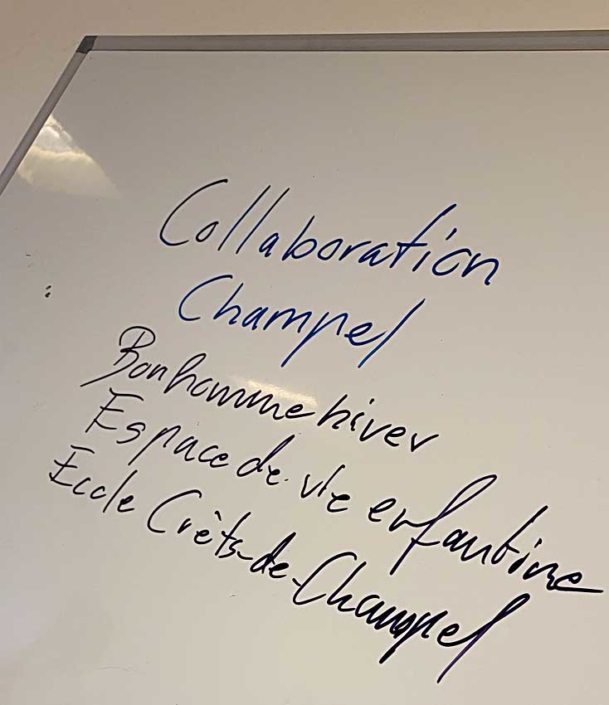 Collaboration
Champel
Bonhomme hiver
Espace de vie enfantine
Ecole Crêts-de-Champel